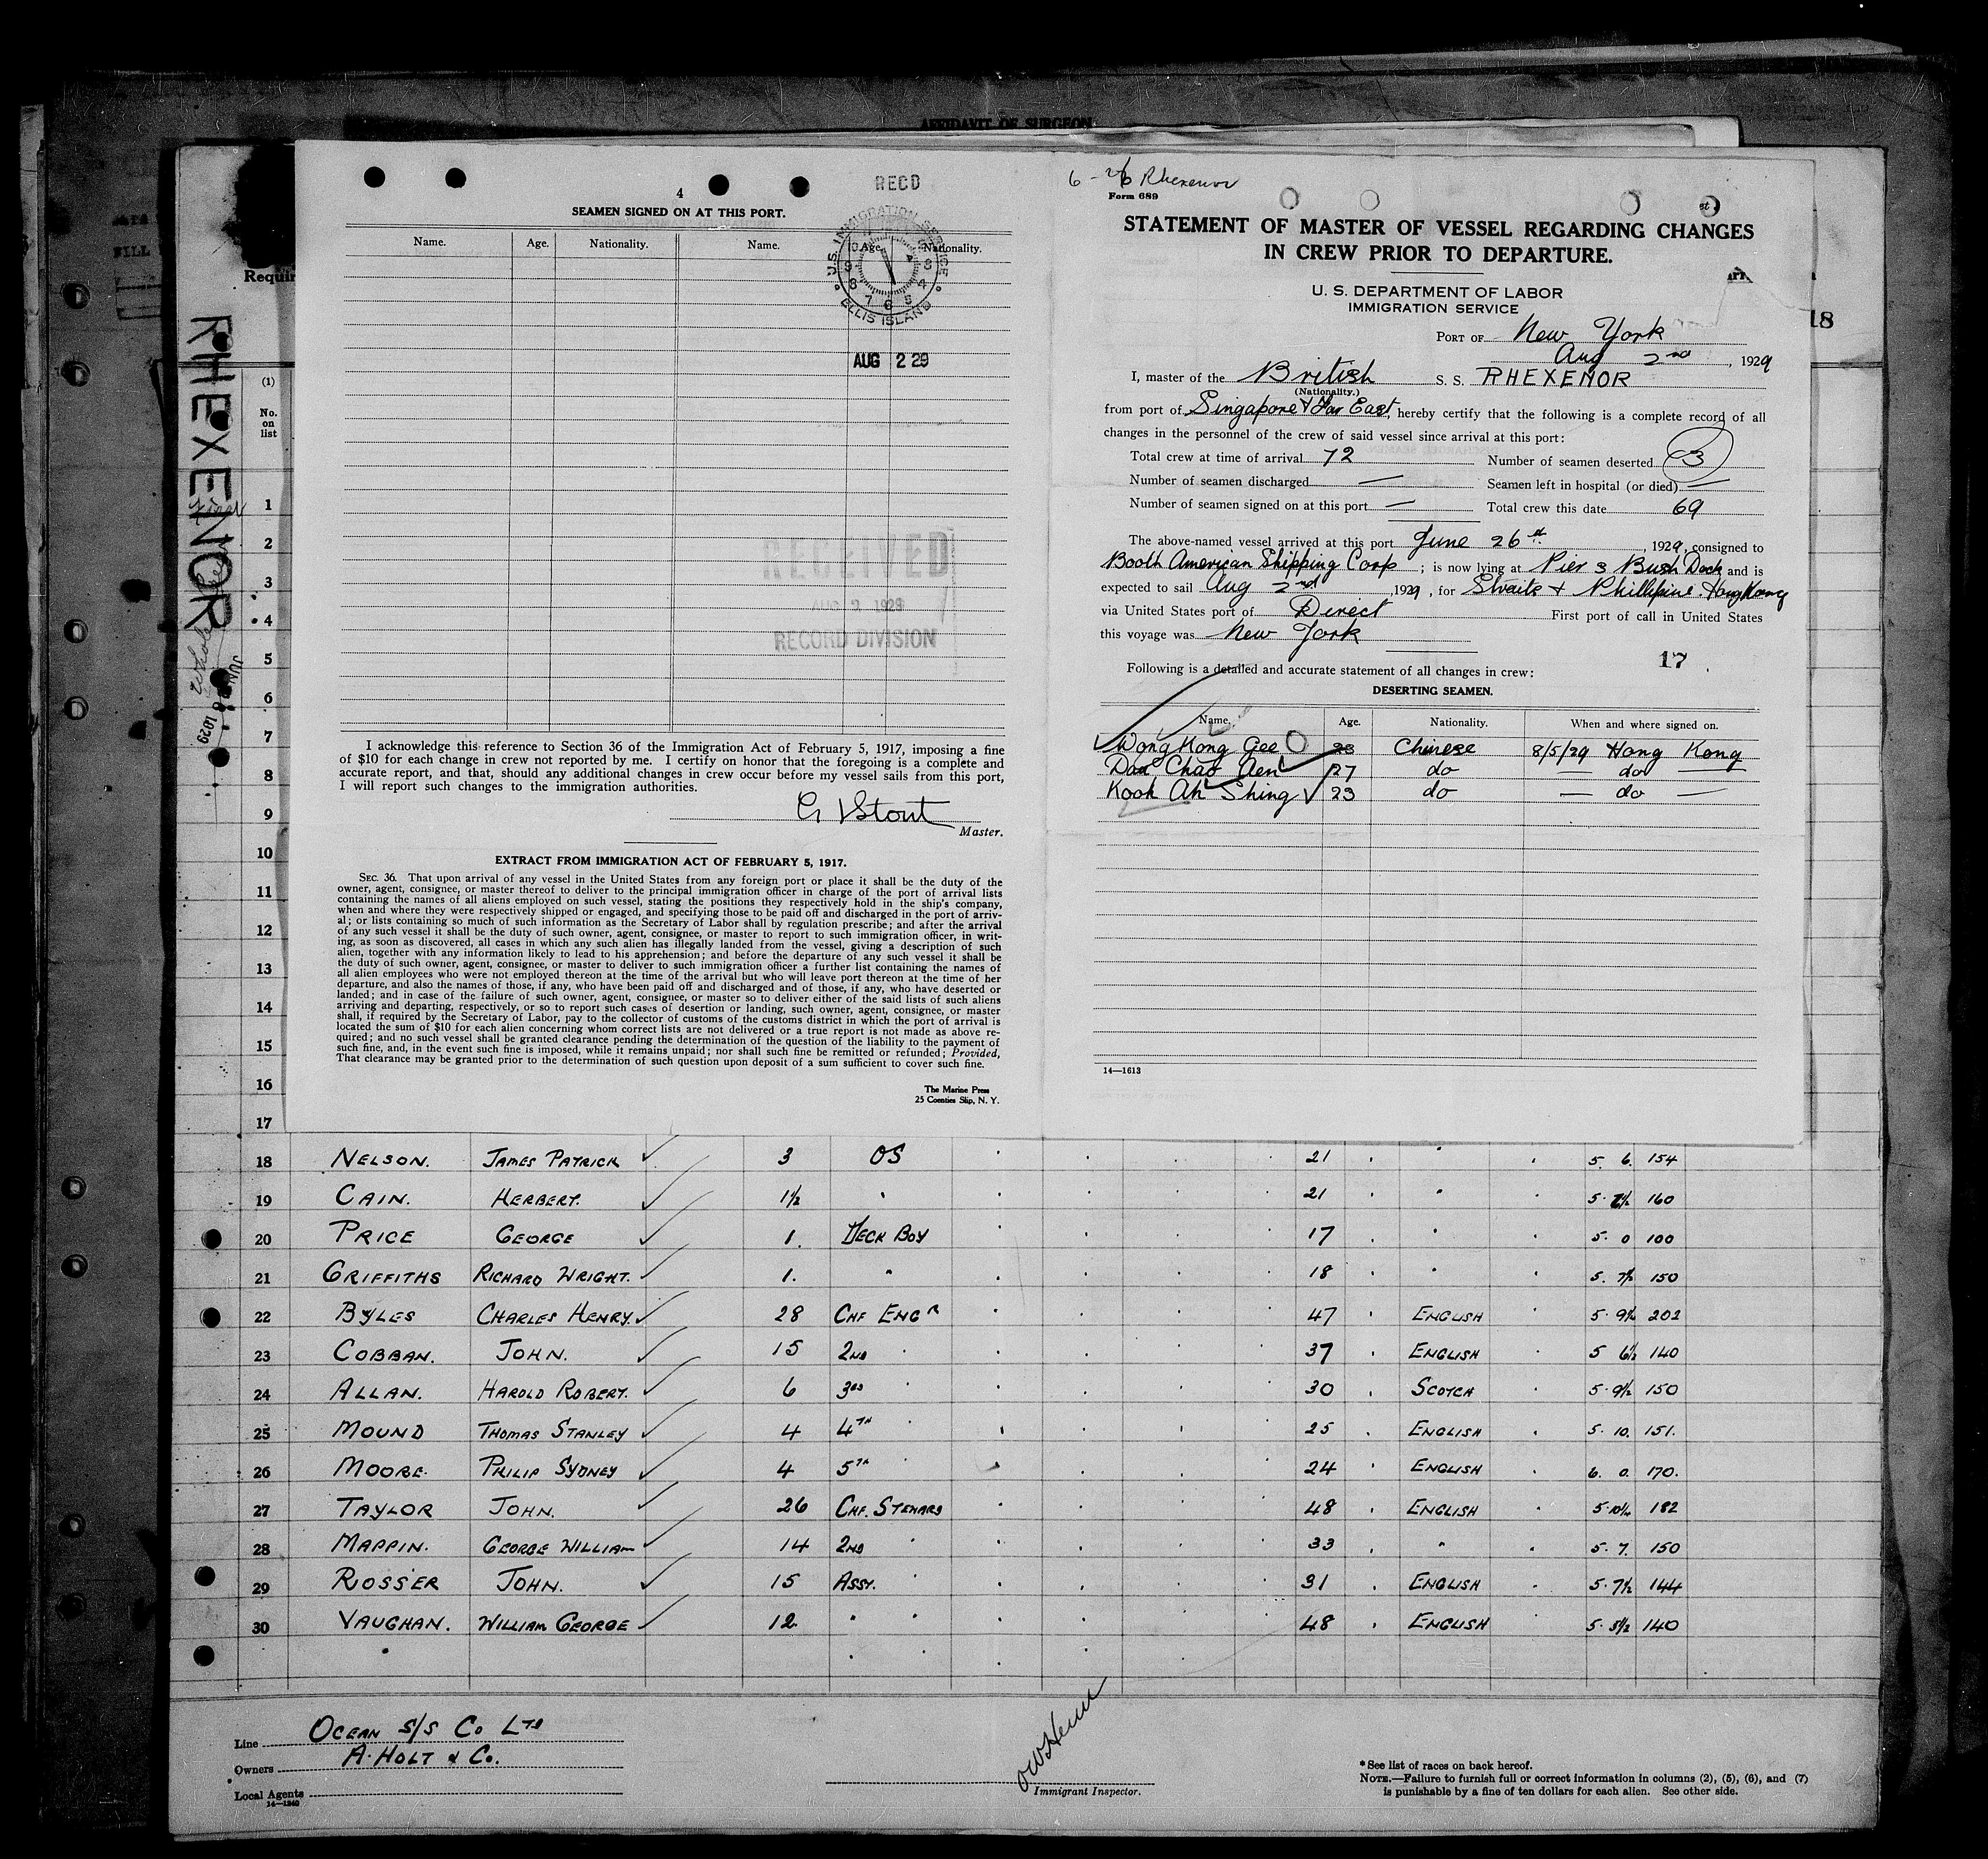 AFFIDAVIT OF SURGEON
RHEXENOR
(1)
No.
on
list
1
2
3
4
5
6
7
8
9
10
11
12
13
14
15
16
17
4
SEAMEN SIGNED ON AT THIS PORT.
Name. Age. Nationality. Name. Age. Nationality.
RECD
U.S. IMMIGRATION SERVICE
ELLIS ISLAND
AUG 2 29
RECEIVED
AUG 1929
RECORD DIVISION
I acknowledge this reference to Section 36 of the Immigration Act of February 5, 1917, imposing a fine
of $10 for each change in crew not reported by me. I certify on honor that the foregoing is a complete and
accurate report, and that, should any additional changes in crew occur before my vessel sails from this port,
I will report such changes to the immigration authorities.
G V Stout
Master.
EXTRACT FROM IMMIGRATION ACT OF FEBRUARY 5, 1917.
SEC. 36. That upon arrival of any vessel in the United States from any foreign port or place it shall be the duty of the
owner, agent, consignee, or master thereof to deliver to the principal immigration officer in charge of the port of arrival lists
containing the names of all aliens employed on such vessel, stating the positions they respectively hold in the ship's company,
when and where they were respectively shipped or engaged, and specifying those to be paid off and discharged in the port of arriv-
al; or lists containing so much of such information as the Secretary of Labor shall by regulation prescribe; and after the arrival
of any such vessel it shall be the duty of such owner, agent, consignee, or master to report to such immigration officer, in writ-
ing, as soon as discovered, all cases in which any such alien has illegally landed from the vessel, giving a description of such
alien, together with any information likely to lead to his apprehension; and before the departure of any such vessel it shall be
the duty of such owner, agent, consignee, or master to deliver to such immigration officer a further list containing the names of
all alien employees who were not employed thereon at the time of the arrival but who will leave port thereon at the time of her
departure, and also the names of those, if any, who have been paid off and discharged and of those, if any, who have deserted or
landed; and in case of the failure of such owner, agent, consignee, or master so to deliver either of the said lists of such aliens
arriving and departing, respectively, or so to report such cases of desertion or landing, such owner, agent, consignee, or master
shall, if required by the Secretary of Labor, pay to the collector of customs of the customs district in which the port of arrival is
located the sum of $10 for each alien concerning whom correct lists are not delivered or a true report is not made as above re-
quired; and no such vessel shall be granted clearance pending the determination of the question of the liability to the payment of
such fine, and, in the event such fine is imposed, while it remains unpaid; nor shall such fine be remitted or refunded; Provided,
That clearance may be granted prior to the determination of such question upon deposit of a sum sufficient to cover such fine.
The Marine Press
25 Coenties Slip, N. Y.
6-26 Rhexenor
Form 689
STATEMENT OF MASTER OF VESSEL REGARDING CHANGES
IN CREW PRIOR TO DEPARTURE.
U. S. DEPARTMENT OF LABOR
IMMIGRATION SERVICE
18
PORT OF New York
Aug 2nd, 1929
I, master of the British S. S. RHEXENOR
(Nationality.)
from port of Singapore & Far East, hereby certify that the following is a complete record of all
changes in the personnel of the crew of said vessel since arrival at this port:
Total crew at time of arrival 72 Number of seamen deserted 3
Number of seamen discharged — Seamen left in hospital (or died) —
Number of seamen signed on at this port — Total crew this date 69
The above-named vessel arrived at this port June 26th, 1929, consigned to
Booth American Shipping Corp; is now lying at Pier 3 Bush Dock and is
expected to sail Aug 2nd, 1929, for Straits & Phillipine. HongKong
via United States port of Direct First port of call in United States
this voyage was New York
17
Following is a detailed and accurate statement of all changes in crew:
DESERTING SEAMEN.
Name. Age. Nationality. When and where signed on.
Wong Hong Gee 28 Chinese 8/5/29 Hong Kong
Chao 27 do — do —
Kook Ah Shing 23 do — do —
14—1613
18 NELSON. JAMES PATRICK 3 OS 21 " 5. 6. 154
19 CAIN. HERBERT. 1½ " 21 " 5. 160
20 PRICE GEORGE 1. DECK BOY 17 " 5. 0 100
21 GRIFFITHS RICHARD WRIGHT. 1. " 18 " 5. 7½ 150
22 BYLES CHARLES HENRY. 28 CHF ENGR 47 ENGLISH 5. 202
23 COBBAN. JOHN. 15 2ND " 37 ENGLISH 5 6½ 140
24 ALLAN. HAROLD ROBERT. 6 3RD " 30 SCOTCH 5. 9½ 150
25 MOUND THOMAS STANLEY 4 4TH " 25 ENGLISH 5. 10. 151.
26 MOORE. PHILIP SYDNEY 4 5TH " 24 ENGLISH 6. 0. 170.
27 TAYLOR JOHN. 26 CHF. STEWARD 48 ENGLISH 5. 182
28 MAPPIN. GEORGE WILLIAM 14 2ND " 33 " 5. 7. 150
29 ROSSER JOHN. 15 ASST. " 31 ENGLISH 5. 7½ 144
30 VAUGHAN. WILLIAM GEORGE 12 " " 48 ENGLISH 5. 140
Line OCEAN S/S Co LTD
Owners A. HOLT & Co.
Local Agents
14—1240
Immigrant Inspector.
*See list of races on back hereof.
NOTE.—Failure to furnish full or correct information in columns (2), (5), (6), and (7)
is punishable by a fine of ten dollars for each alien. See other side.